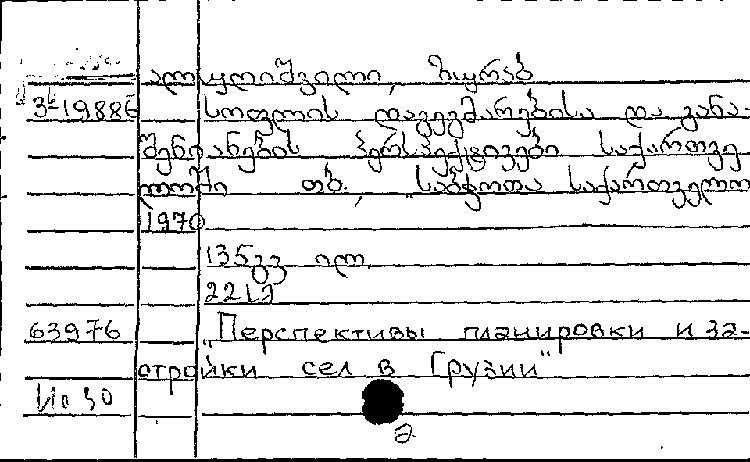 ალულიშვილი, ზურაბ
3-19886 სოფლის დაგეგმარებისა და განა-
შენიანების პერსპექტივები საქართვე-
ლოში თბ., „საბჭოთა საქართველო
1970
135გვ ილ.
2212
63976 „Перспективы планировки и за-
стройки сел в Грузии"